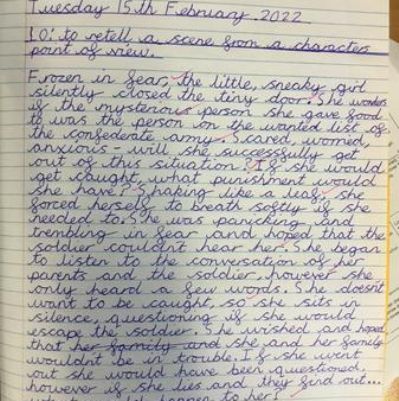 Tuesday 15th February 2022
LO: to retell a scene from a characters
point of view.
Frozen in fear, the little, sneaky girl
silently closed the tiny door. She wonders
if the mysterious person she gave food
to was the person on the wanted list of
the confederate army. Scared, worried,
anxious - will she successfully get
out of this situation? If she would
get caught, what punishment would
she have? Shaking like a leaf, she
forced herself to breath softly if she
needed to. She was panicking and
trembling in fear and hoped that the
soldier couldn't hear her. She began
to listen to the conversation of her
parents and the soldier, however she
only heard a few words. She doesnt
want to be caught, so she sits in
silence, questioning if she would
escape the soldier. She wished and hoped
that her family and she and her family
wouldn't be in trouble. If she went
out she would have been questioned,
however if she lies and they find out...
happen to her?